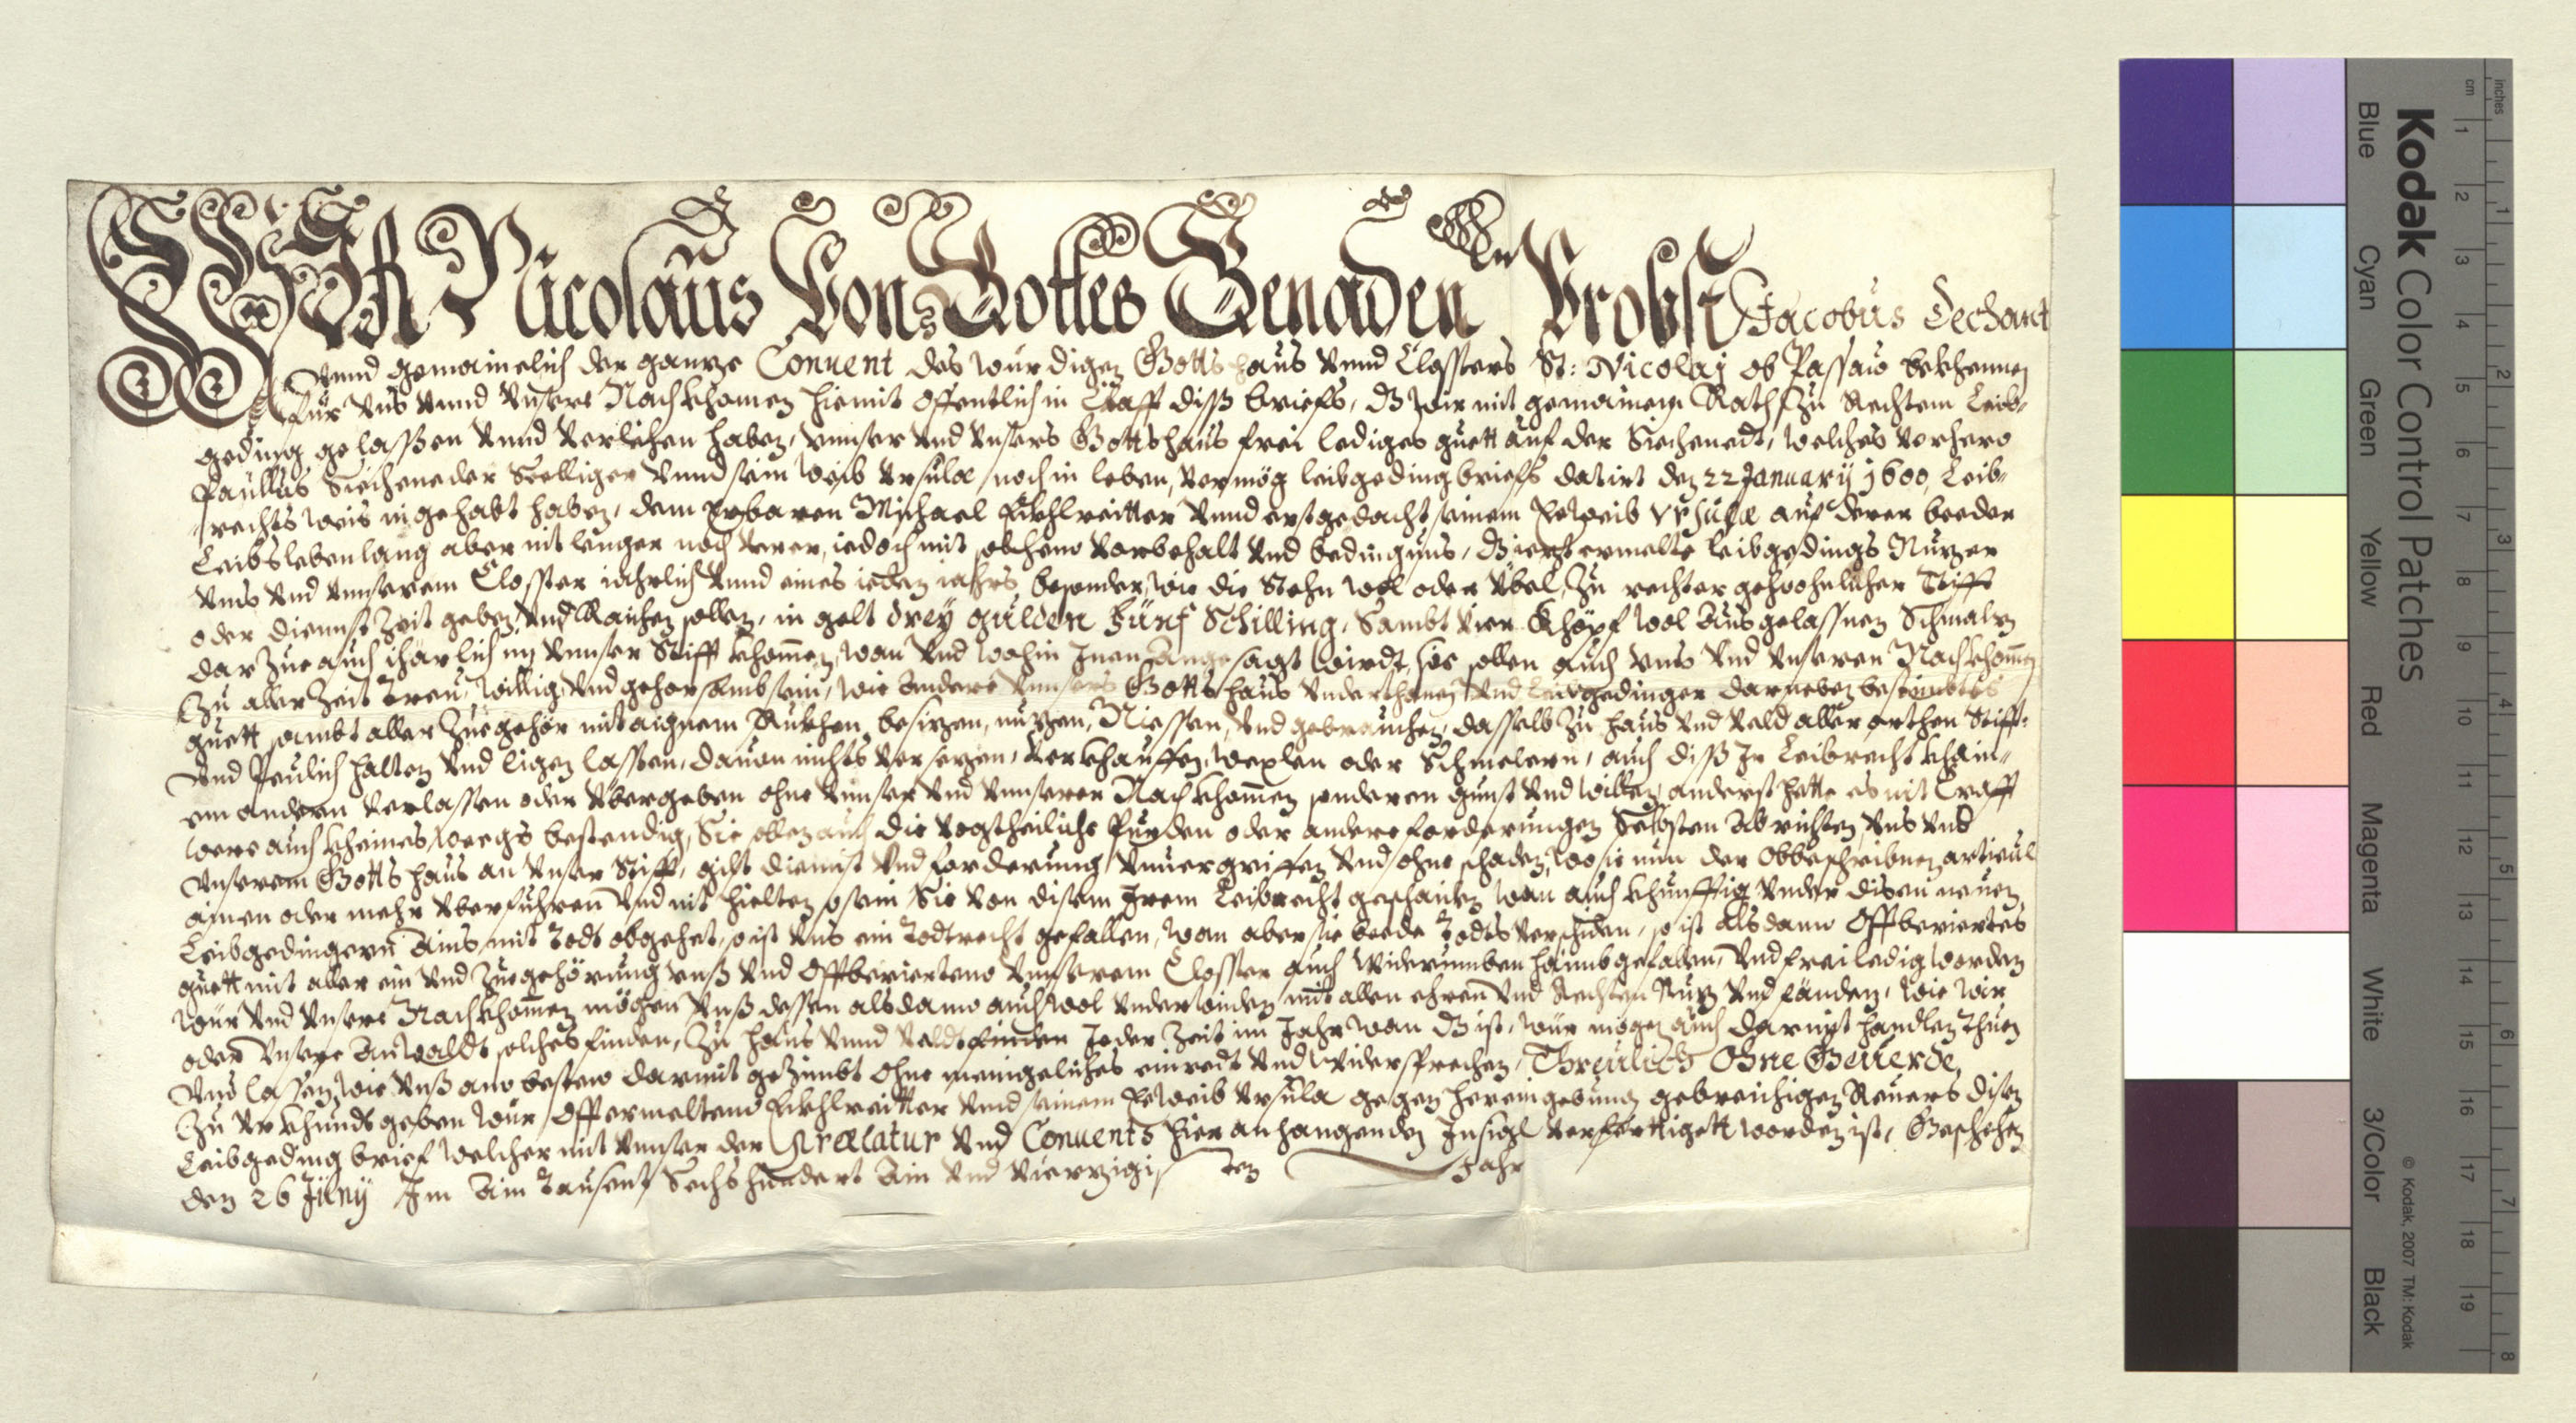 WIR Nicolaus Von Gottes Genaden Probst Jacobus Dechant
vnnd gemainelich der gannze Conuent des würdigen Gottshaus vnnd Clossters St: Nicolaj ob Passaw bekhennen
für vns vnnd vnsere Nachkhomen hiemit offentlich in Crafft diss briefs, dz wir mit gemainem Rath zu Rechtem Leib-
geding gelassen vnnd verlihen haben, vnnser vnd vnsers Gottshaus frei lediges guett auf der Siechenedt, welches vorhero
Paullus Siecheneder Seelliger vnnd sein weib Vrsula noch in leben, vermög leibgedingbriefs datirt den 22 January 1600, Leib-
rechts weis ingehabt haben, dem Erbaren Michael vnnd erstgedacht seinem Eheweib Vrsula auf deren beeder
Leibs lebenlang aber nit lenger noch verer, iedoch mit solchem vorbehalt vnd bedingnus, dz iezt ermelte leibgedings Nuzer
vns vnd vnnserem Closster iährlich vnnd eines ieden iahrs besonder, wie die Stehn wol oder übel, zu rechter gewohnlicher Stifft
oder diennst zeit geben, vnd Raichen sollen, in gelt drey gulden Fünf Schilling, Sambt vier Khöpf wol Ausgelassnen Schmalz
darzue auch ihärlich in vnnser Stifft khomen, wan vnd wohin Inen Angesagt wirdt, sie sollen auch vns vnd vnseren Nachkhomen
zu aller zeit treu, willig, vnd gehorsamb sein, wie Andere vnnsers Gottshaus vnderthanen vnd Leibgedinger darneben bestimbtes
guett sambt aller zuegehör mit aignem Rukhen besizen, nuzen, Niessen, vnd gebrauchen, dasselb zu haus vnd veld aller orthen Stifft-
vnd Peulich halten vnd ligen lassen, dauon nichts versezen, verkhauffen, wexlen oder Schmelern, auch diss Ir Leibrecht khain-
em andern verlassen oder vbergeben ohne vnnser vnd vnnserer Nachkhomen sonderen gunst vnd willen, anderst hette es nit Crafft
were auch kheines weegs bestendig, Sie sollen auch die vogtheiliche oder andere forderungen Selbsten Abrichten, vns vnd
vnserem Gottshaus an vnser Stifft, gilt dienst vnd forderung vnuergriffen vnd ohne schaden, wo sie nun der Obbeschribnen articul
ainen oder mehr vberfuhren vnd nit hielten, so sein Sie von disem Irem Leibrecht geschaiden, wan auch khunfftig vnder disen neuen
Leibgedingern Ains mit todt abgehet, so ist vns ein todtrecht gefallen, wan aber sie beede todts verschiden, so ist Alsdann Offtberiertes
guett mit aller ein vnd zuegehörung vnss vnd offtberiertem vnnserem Closster auch widerumben haimbgefallen, vnd frei ledig worden
wür vnd vnsere Nachkhomen mögen vnss dessen alsdann auch wol vnderwinden, mit allen ehren vnd Rechten Nuz vnd wie wir
oder vnsere Anwaldt solches finden, zu haus vnnd veldt finden Jeder zeit im Jahr wan dz ist, wür mögen auch darmit handlen thuen
vnd lassen, wie vnss am besten darmit gezimbt ohne menigeliches einredt vnd Widersprechen, Threulich Ohne Geuerde,
Zu vrkhundt geben wür Offtermeltem vnnd seinem Eheweib Vrsula gegen hereingebung gebreichigen Reuers disen
Leibgedingbrief welcher mit vnnser der Prælatur vnd Conuents hieranhangenden Insigl verferttigett worden ist, Geschehen
den 26 Juny Im Ain Tausent Sechshundert Ain vnd vierzigisten Jahr
Kodak Color Control Patches
Blue Cyan Green Yellow Red Magenta White 3/Color Black
© Kodak, 2007 TM: Kodak
inches 1 2 3 4 5 6 7 8
cm 1 2 3 4 5 6 7 8 9 10 11 12 13 14 15 16 17 18 19